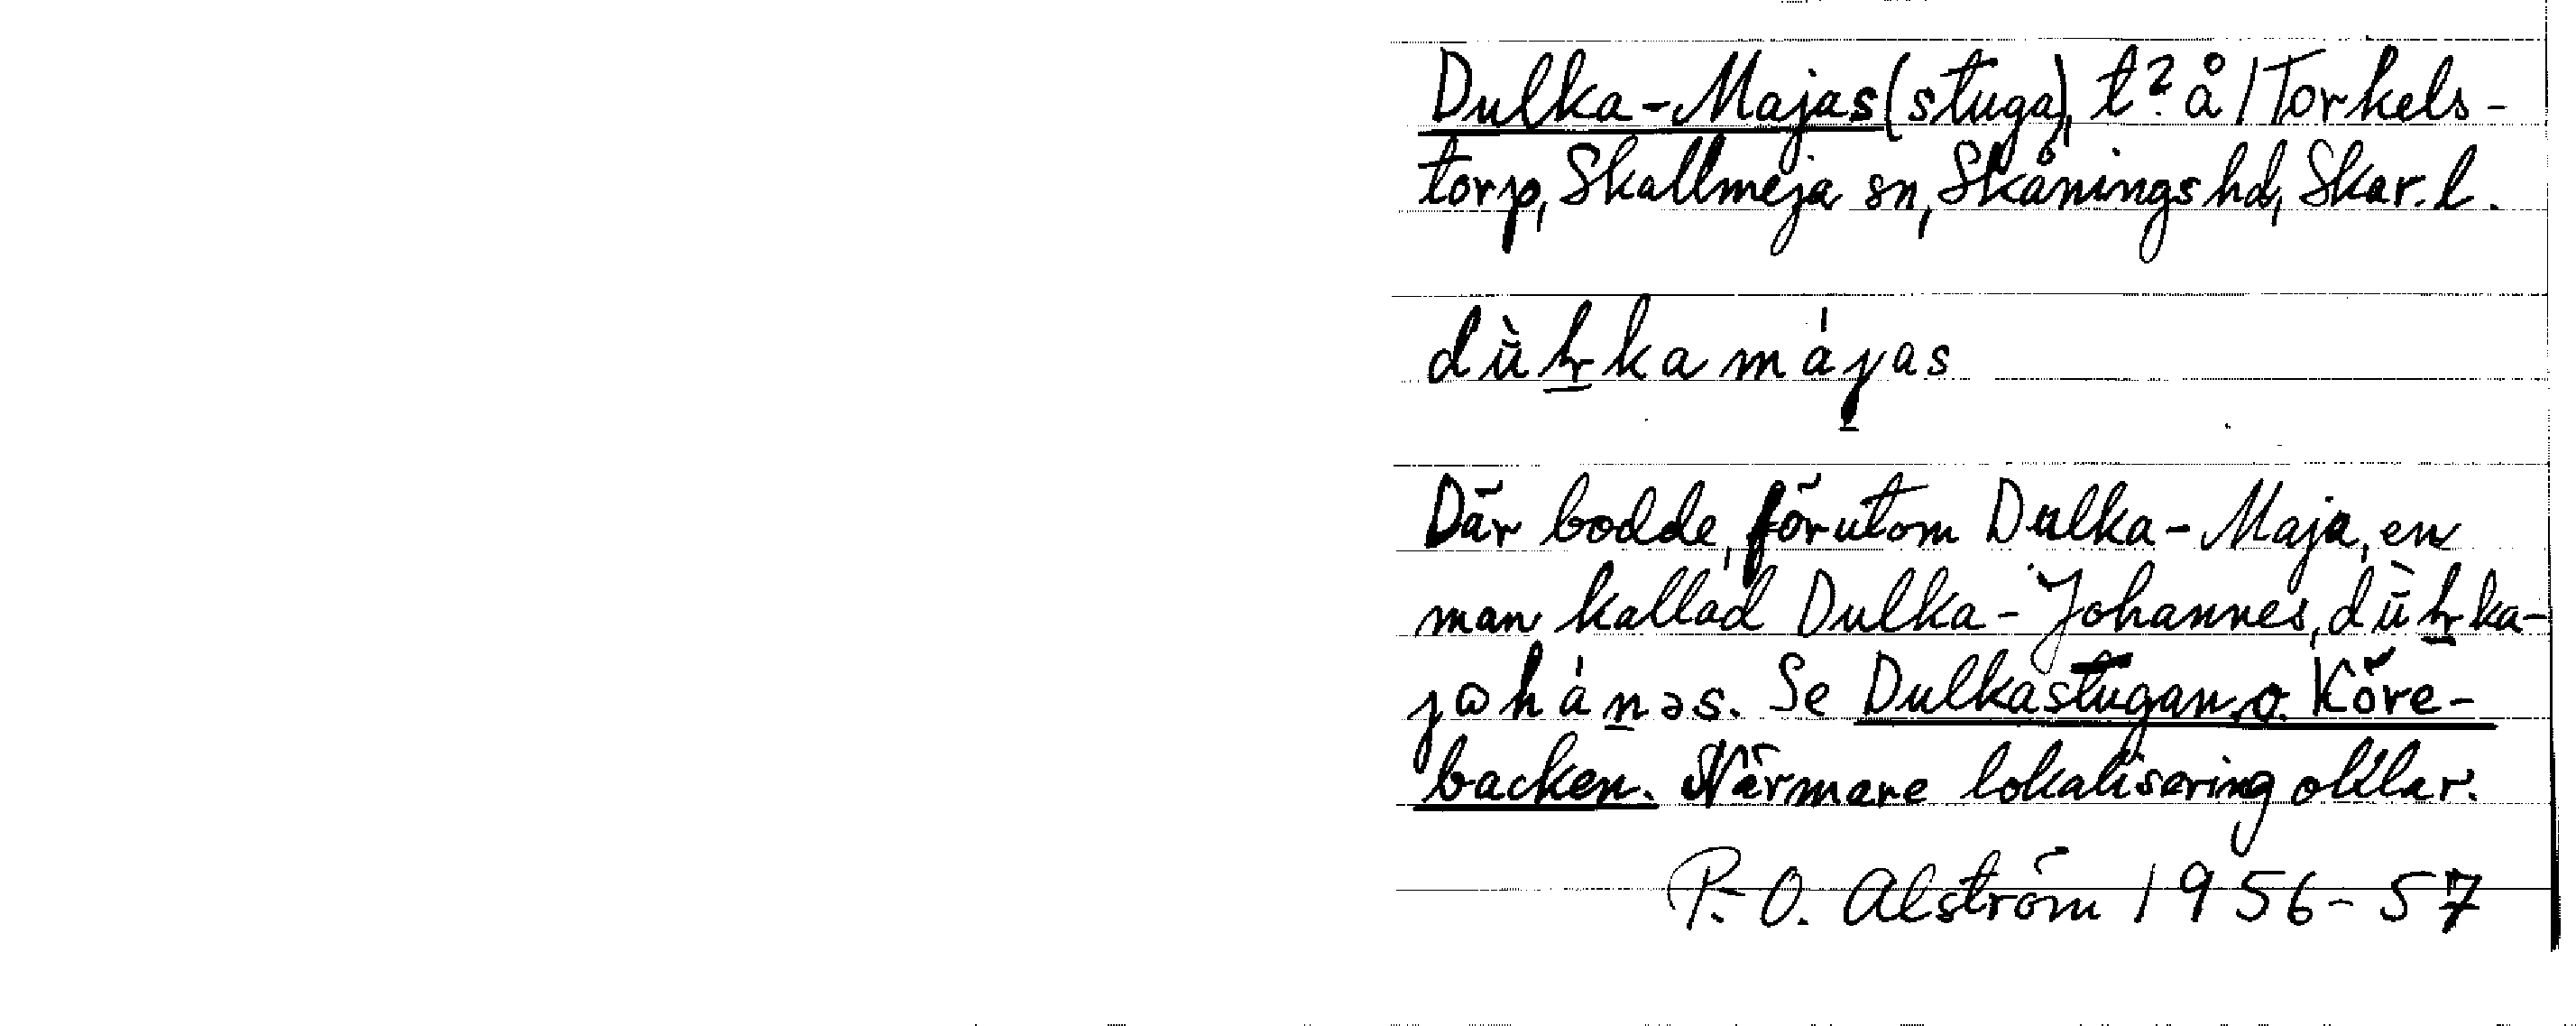 Dulka-Majas (stuga), t? å / Torkels-
torp, Skallmeja sn, Skånings hd, Skar. l.
dù̄ꝉka májas
Där bodde, förutom Dulka-Maja, en
man kallad Dulka-Johannes, dù̄ꝉka-
johánəs. Se Dulkastugan o. Köre-
backen. Närmare lokalisering oklar.
P.-O. Alström 1956-57